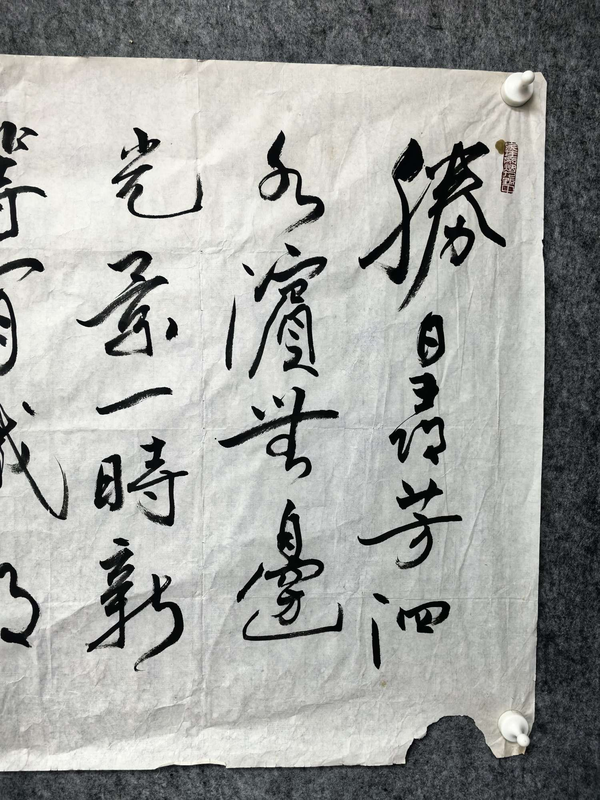 勝日尋芳泗
水濱無邊
光景一時新
等